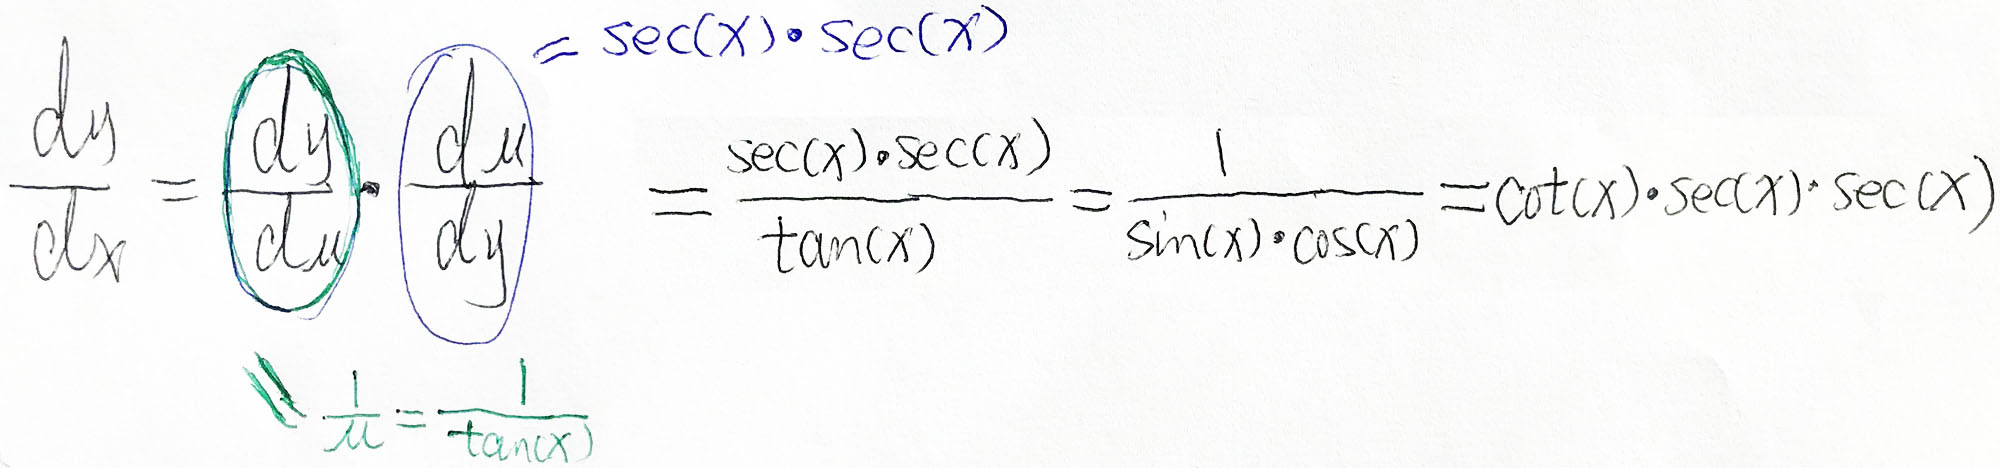 = sec(x)·sec(x)
dy/dx = dy/du · du/dy = sec(x)·sec(x)/tan(x) = 1/sin(x)·cos(x) = cot(x)·sec(x)·sec(x)
= 1/u = 1/tan(x)